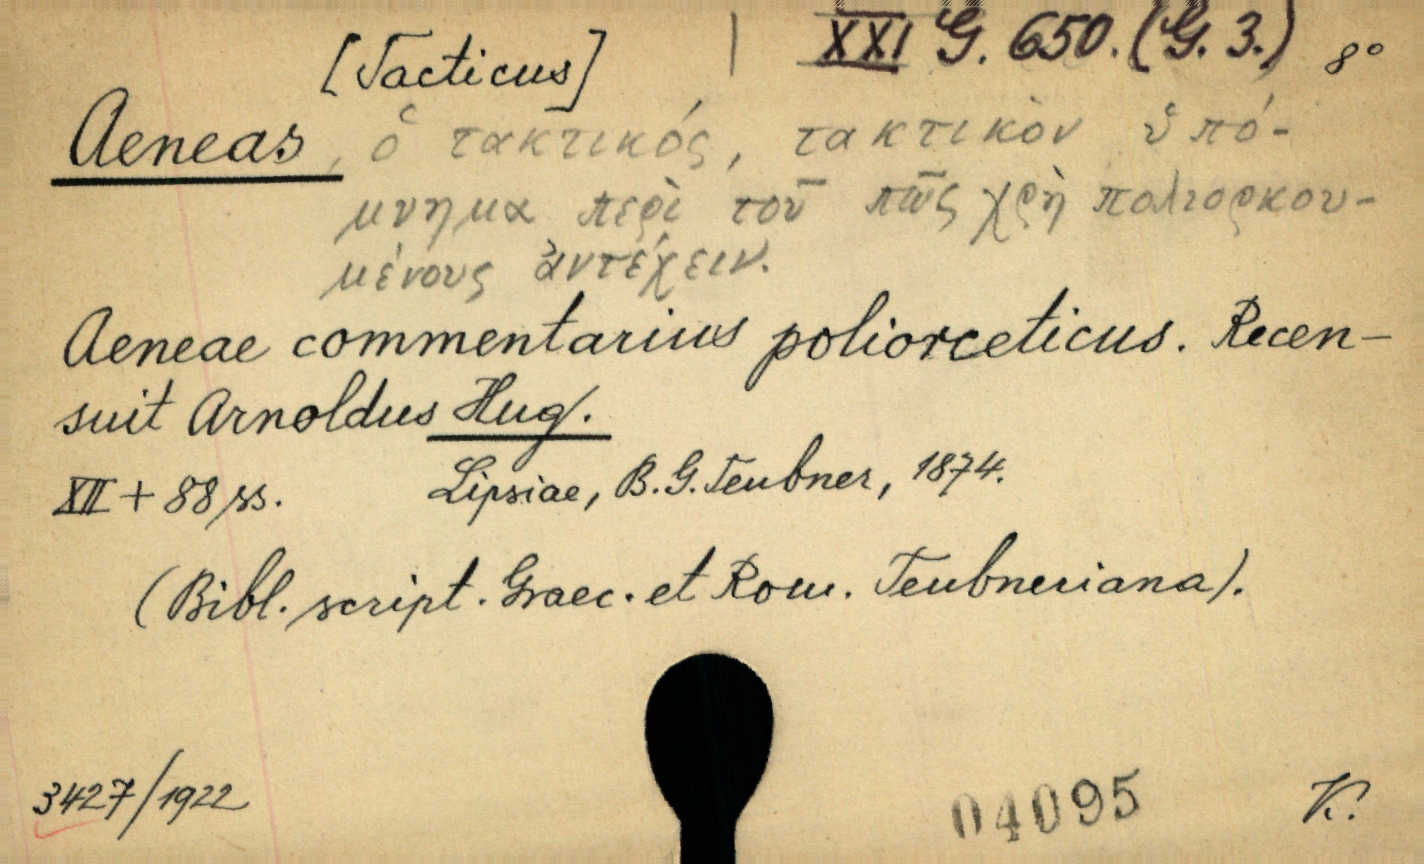 XXI G. 650. (G. 3.) 8°
[Tacticus]
Aeneas, ὁ τακτικός, τακτικὸν ὑπό-
μνημα περὶ τοῦ πῶς χρὴ πολιορκου-
μένους ἀντέχειν.
Aeneae commentarius poliorceticus. Recen-
suit Arnoldus Hug.
XII + 88 ss. Lipsiae, B. G. Teubner, 1874.
(Bibl. script. Graec. et Rom. Teubneriana).
3427/1922 04095 K.